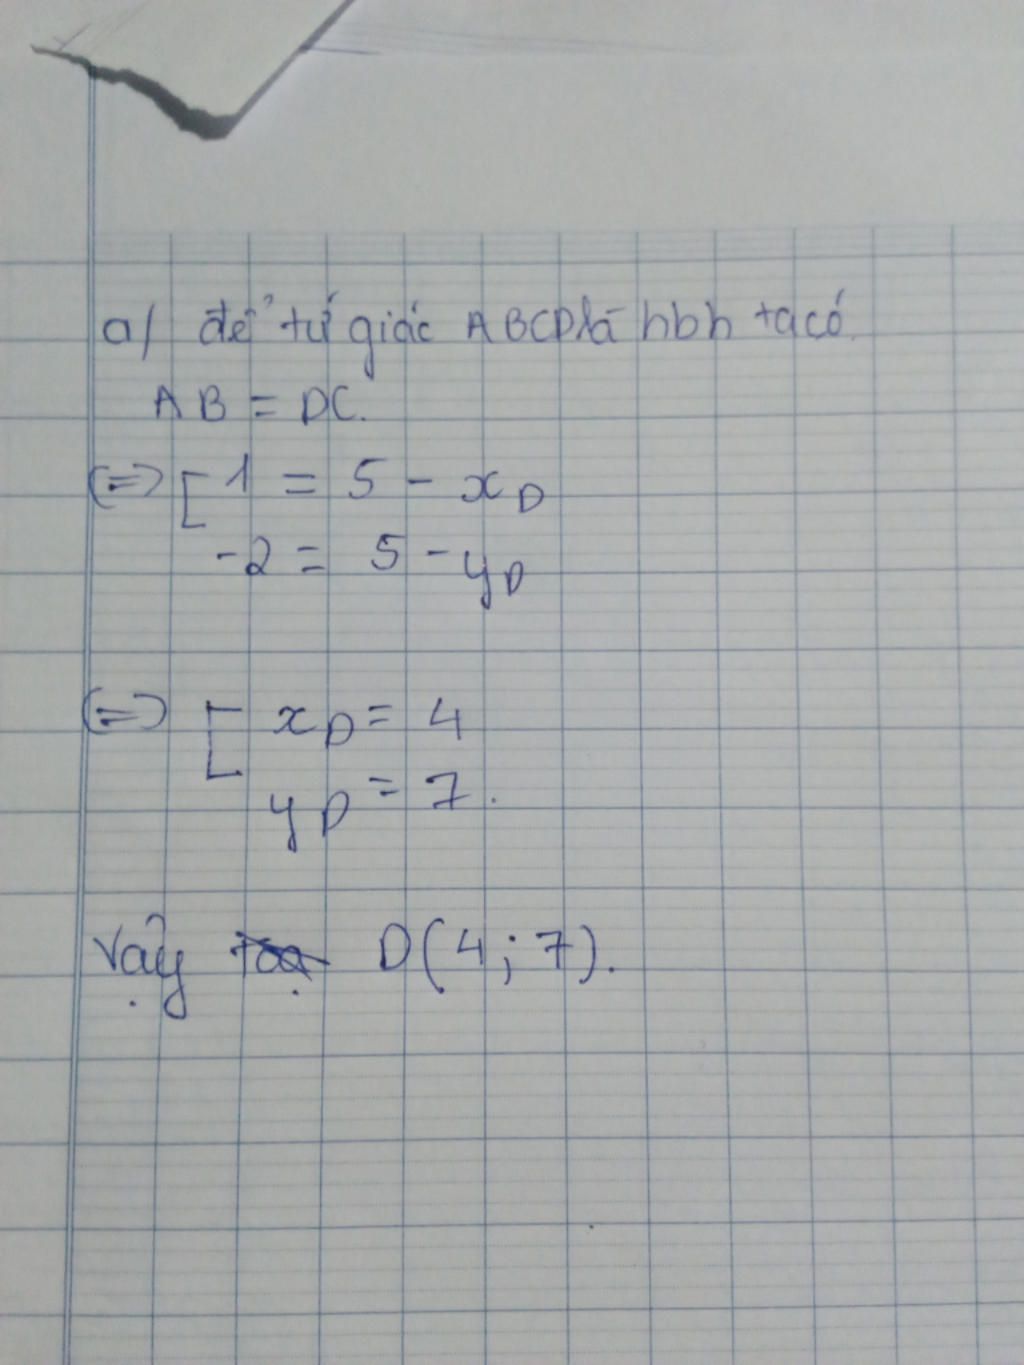 a/ để tứ giác ABCD là hbh ta có
AB = DC.
(=) [ 1 = 5 - xD
-2 = 5 - yD
(=) [ xD = 4
yD = 7.
Vậy D(4; 7).